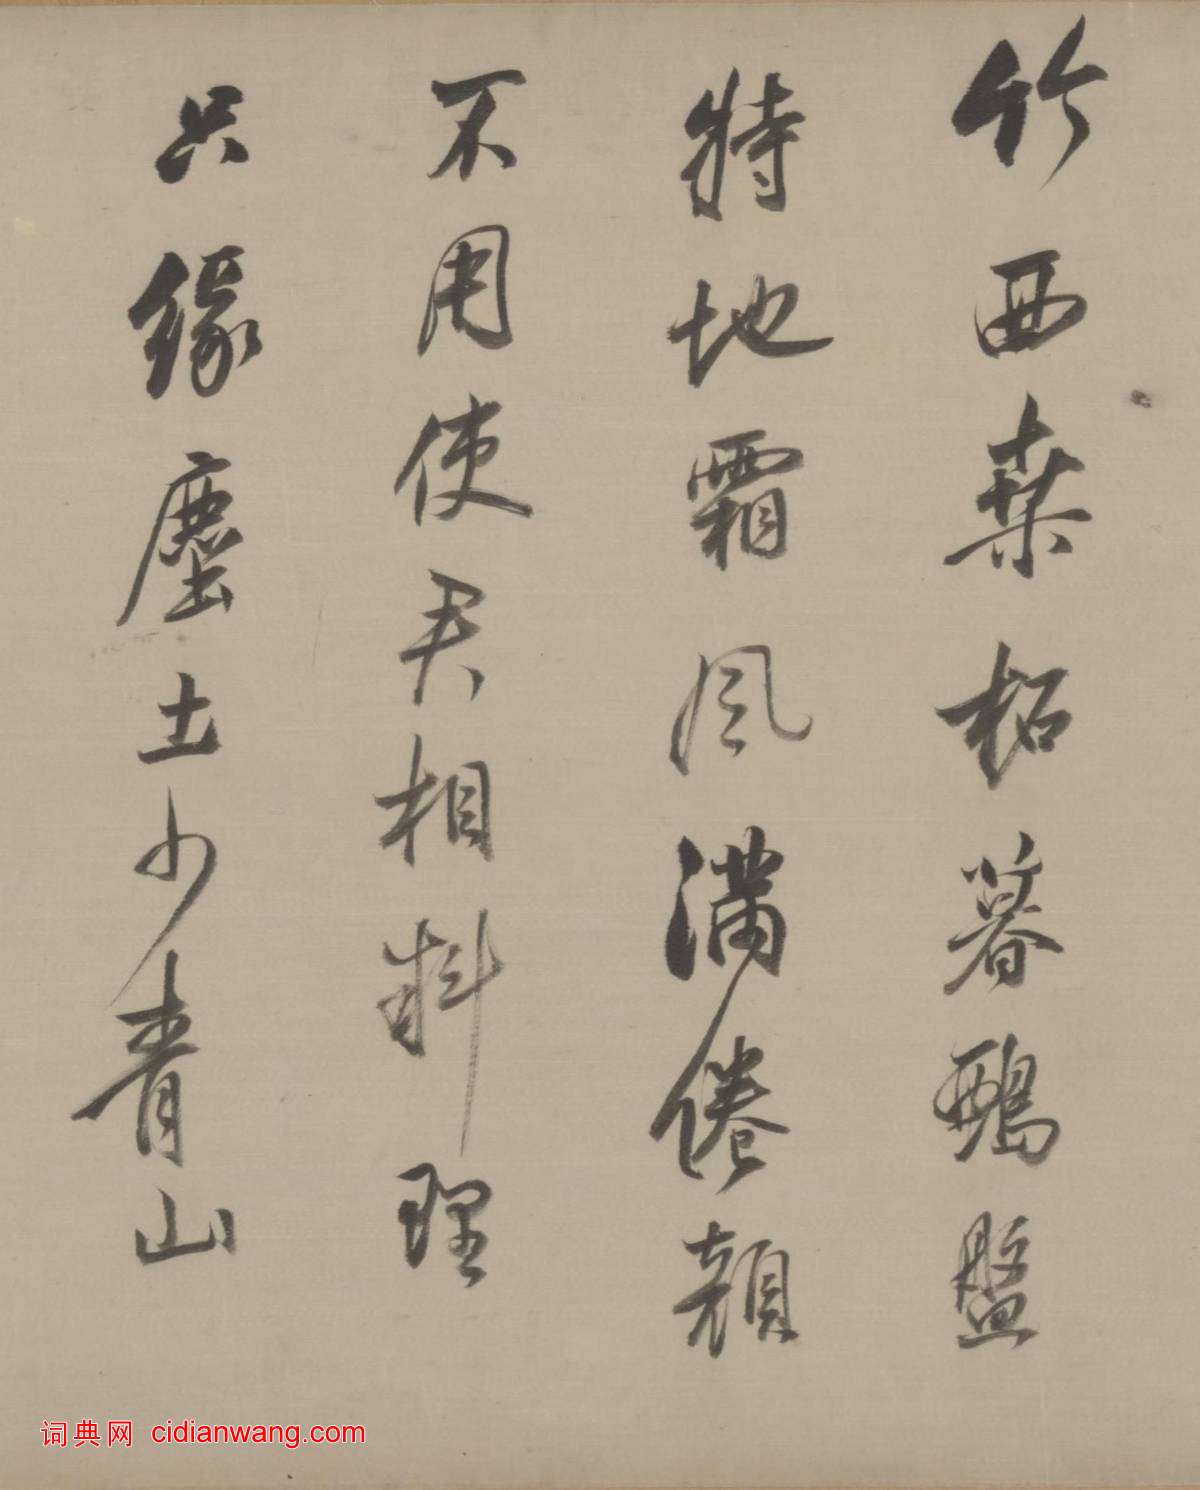 竹西桑柘暮鵶盤
特地霜風滿倦顏
不用使君相料理
只緣塵土少青山
词典网 cidianwang.com